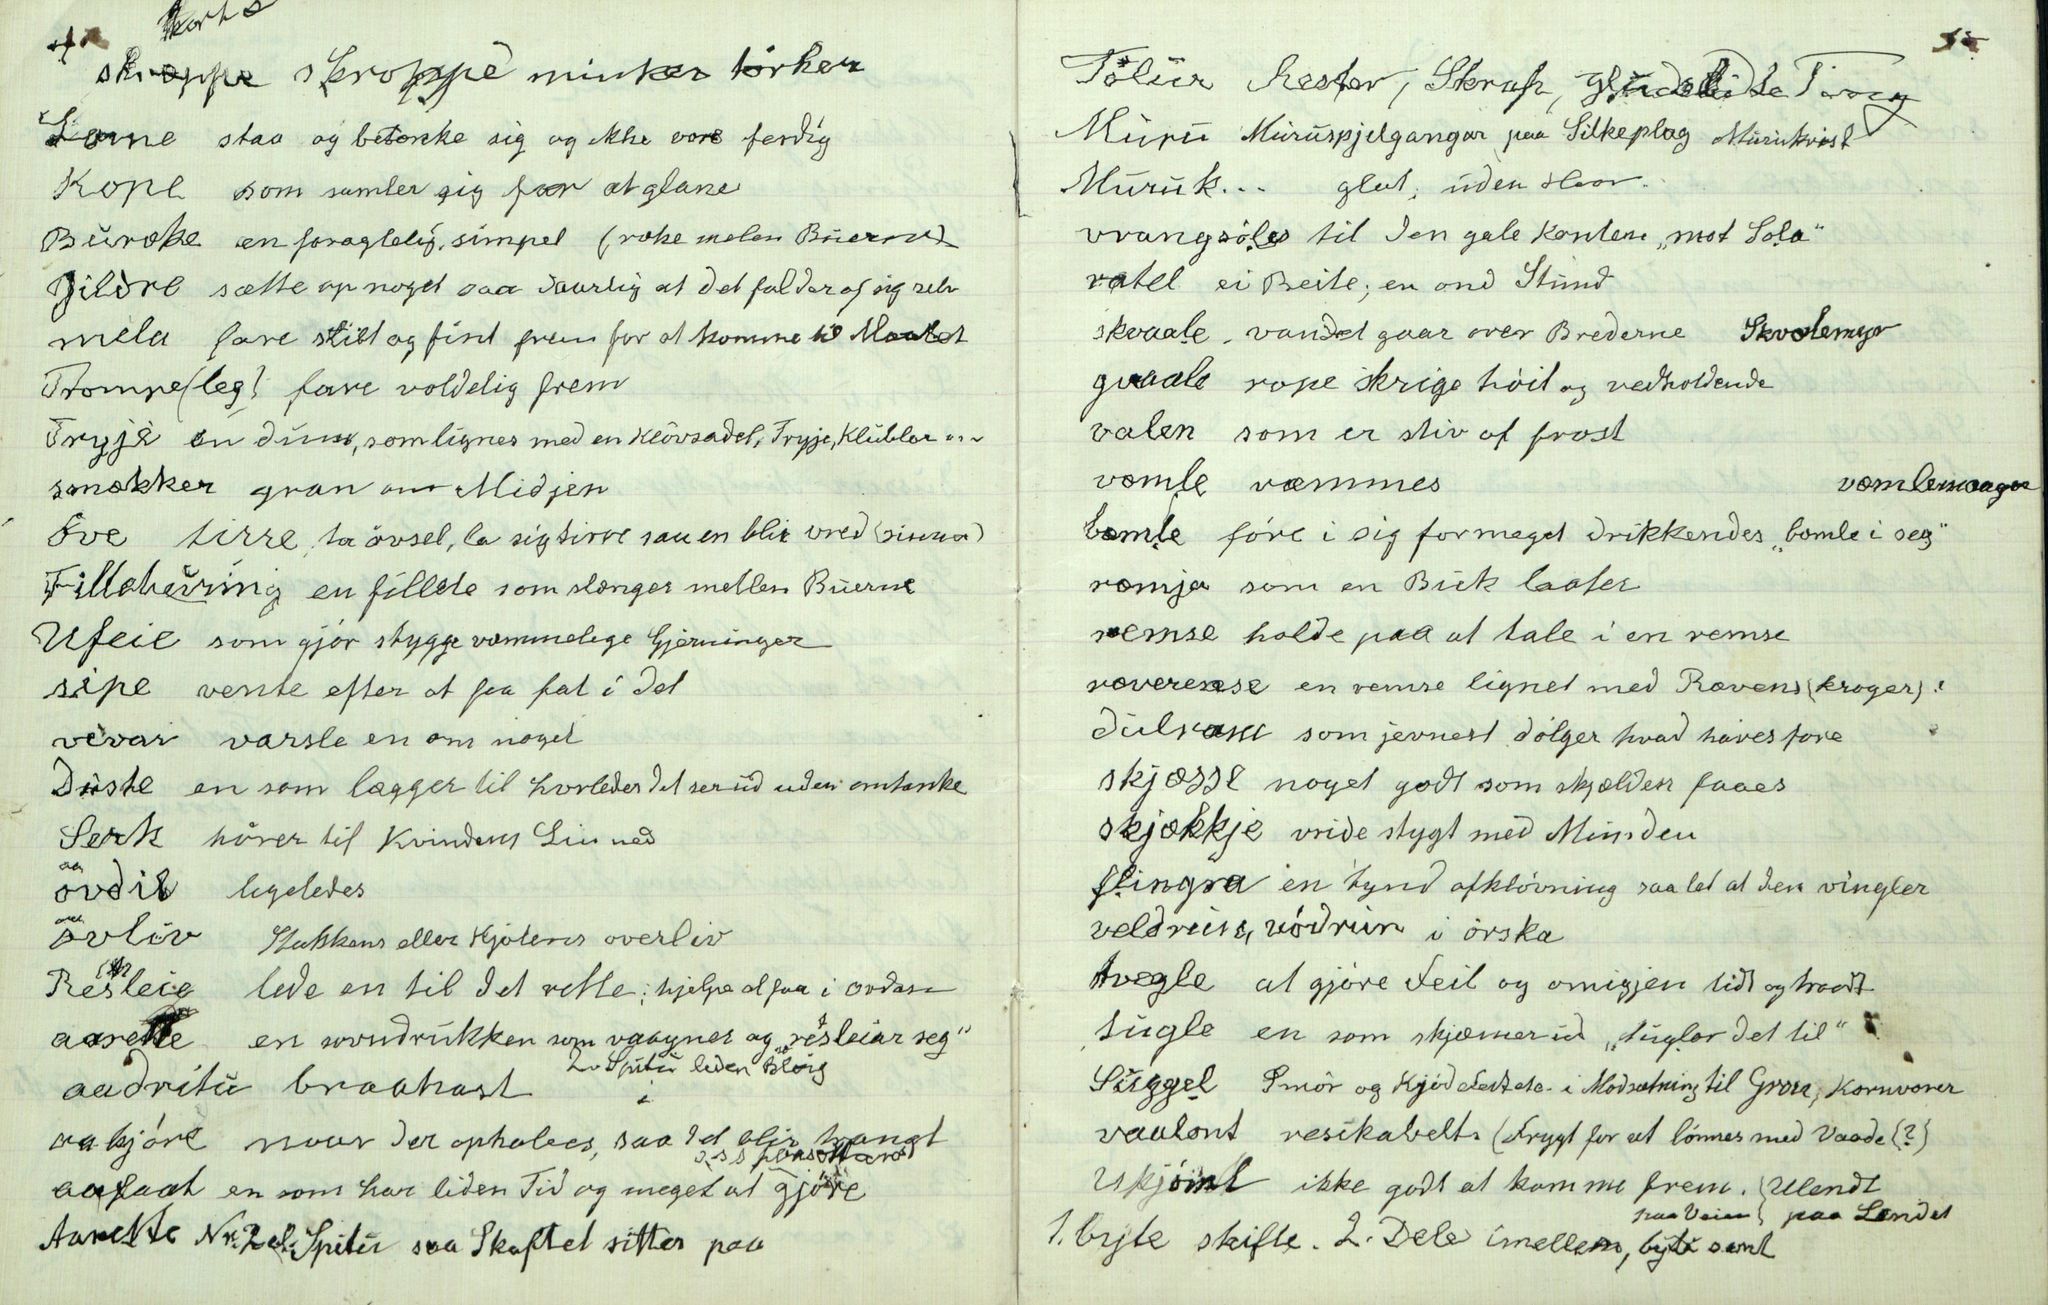 skroppe skroppe minker tørker
staa og betænke sig og ikke være ferdig
Kope som samler sig for at glane
Buræke en foragtelig, simpel (ræke mellen Buerne)
Gildre sætte op noget saa daarlig at det falder af sig selv
mela fare stilt og fint frem for at komme til Maalet
Trompe (leg) fare voldelig frem
Tryje en dum, som lignes med en Kløvsadel, Tryje, Klubbor
smækker gran om Midjen
Øve tirre, ta øvsel, la sig tirre saa en blir vred (sinna)
Fillehæring en fillete som slænger mellen Buerne
Ufeie som gjør stygge væmmelege Gjerninger
sipe vente efter at faa fat i det
vevar varsle en om noget
Duste en som lægger til hvorledes det ser ud uden omtanke
Serk hører til Kvindens Linned
ovdil ligeledes
øvliv Stakkens eller Kjolens overliv
Resleie lede en til det rette; hjelpe at faa i orden
aarette en som vaagner og "resleiar seg"
2. Spitu leden
aadritu braahast
aakjøre naar der opholdes, saa det blir trangt
aafaat en som har liden Tid og meget at gjøre
Aarette Nr. 2 Spitu saa Skaftet sitter paa
Tølur Rester, Skrap,
Muru Muruspjelgangar paa Silkeplag Murukvist
Muruk... glat, uden Haar.
vrangsøles til den gale kanten "mot Sola"
ratel ei Beite; en ond Stund
skvaale vandet gaar over Brederne
gvaale rope skrige høit og vedholdende
valen som er stiv af frost
væmle væmmes
bæmle føre i sig formeget drikkendes "bæmle i seg"
ræmja som en Buk laater
remse holde paa at tale i en remse
ræveremse en remse lignet med Rævens (kroger)
som jevnest dølger hvad haves fore
skjæsse noget godt som skjælden faaes
skjækkje vride stygt med Munden
flingra en tynd afkløvning saa let at den vingler
veldrus, vødrur i ørska
tvegle at gjøre Feil og omigjen tidt og traadt
tugle en som skjæmer ud "tuglar det til"
Suggel Smør og Kjød i Modsætning til Kornvarer
vaalont resikabelt (Frygt for at lønnes med Vaade (?)
Uskjønt ikke godt at komme frem. (Ulendt
paa Veien) paa Landet
1. byte skifte. 2. Dele imellem, byte samt